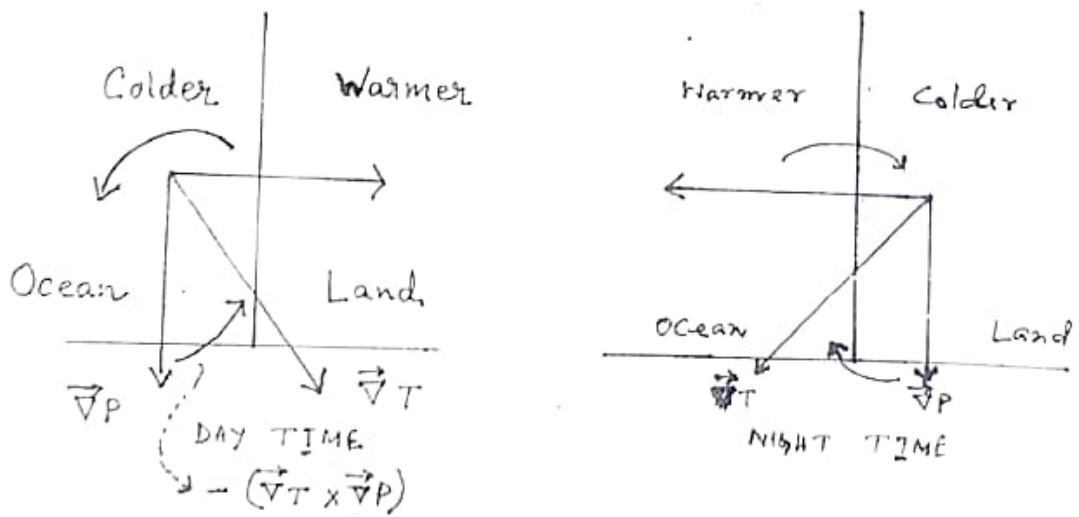 Colder Warmer
Ocean Land
∇⃗P ∇⃗T
DAY TIME
- (∇⃗T x ∇⃗P)
Warmer Colder
Ocean Land
∇⃗T ∇⃗P
NIGHT TIME